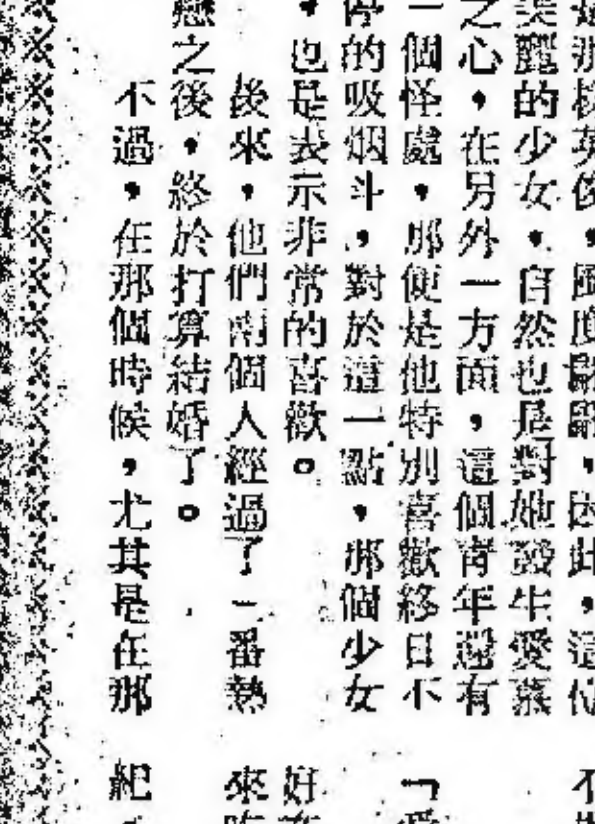 那樣英俊，風度翩翩，因此，這位
美麗的少女，自然也是對她發生愛慕
之心，在另外一方面，這個青年還有
一個怪處，那便是他特別喜歡終日不
停的吸烟斗，對於這一點，那個少女
，也是表示非常的喜歡。
後來，他們兩個人經過了一番熱
戀之後，終於打算結婚了。
不過，在那個時候，尤其是在那
不
「愛
好
來
紀